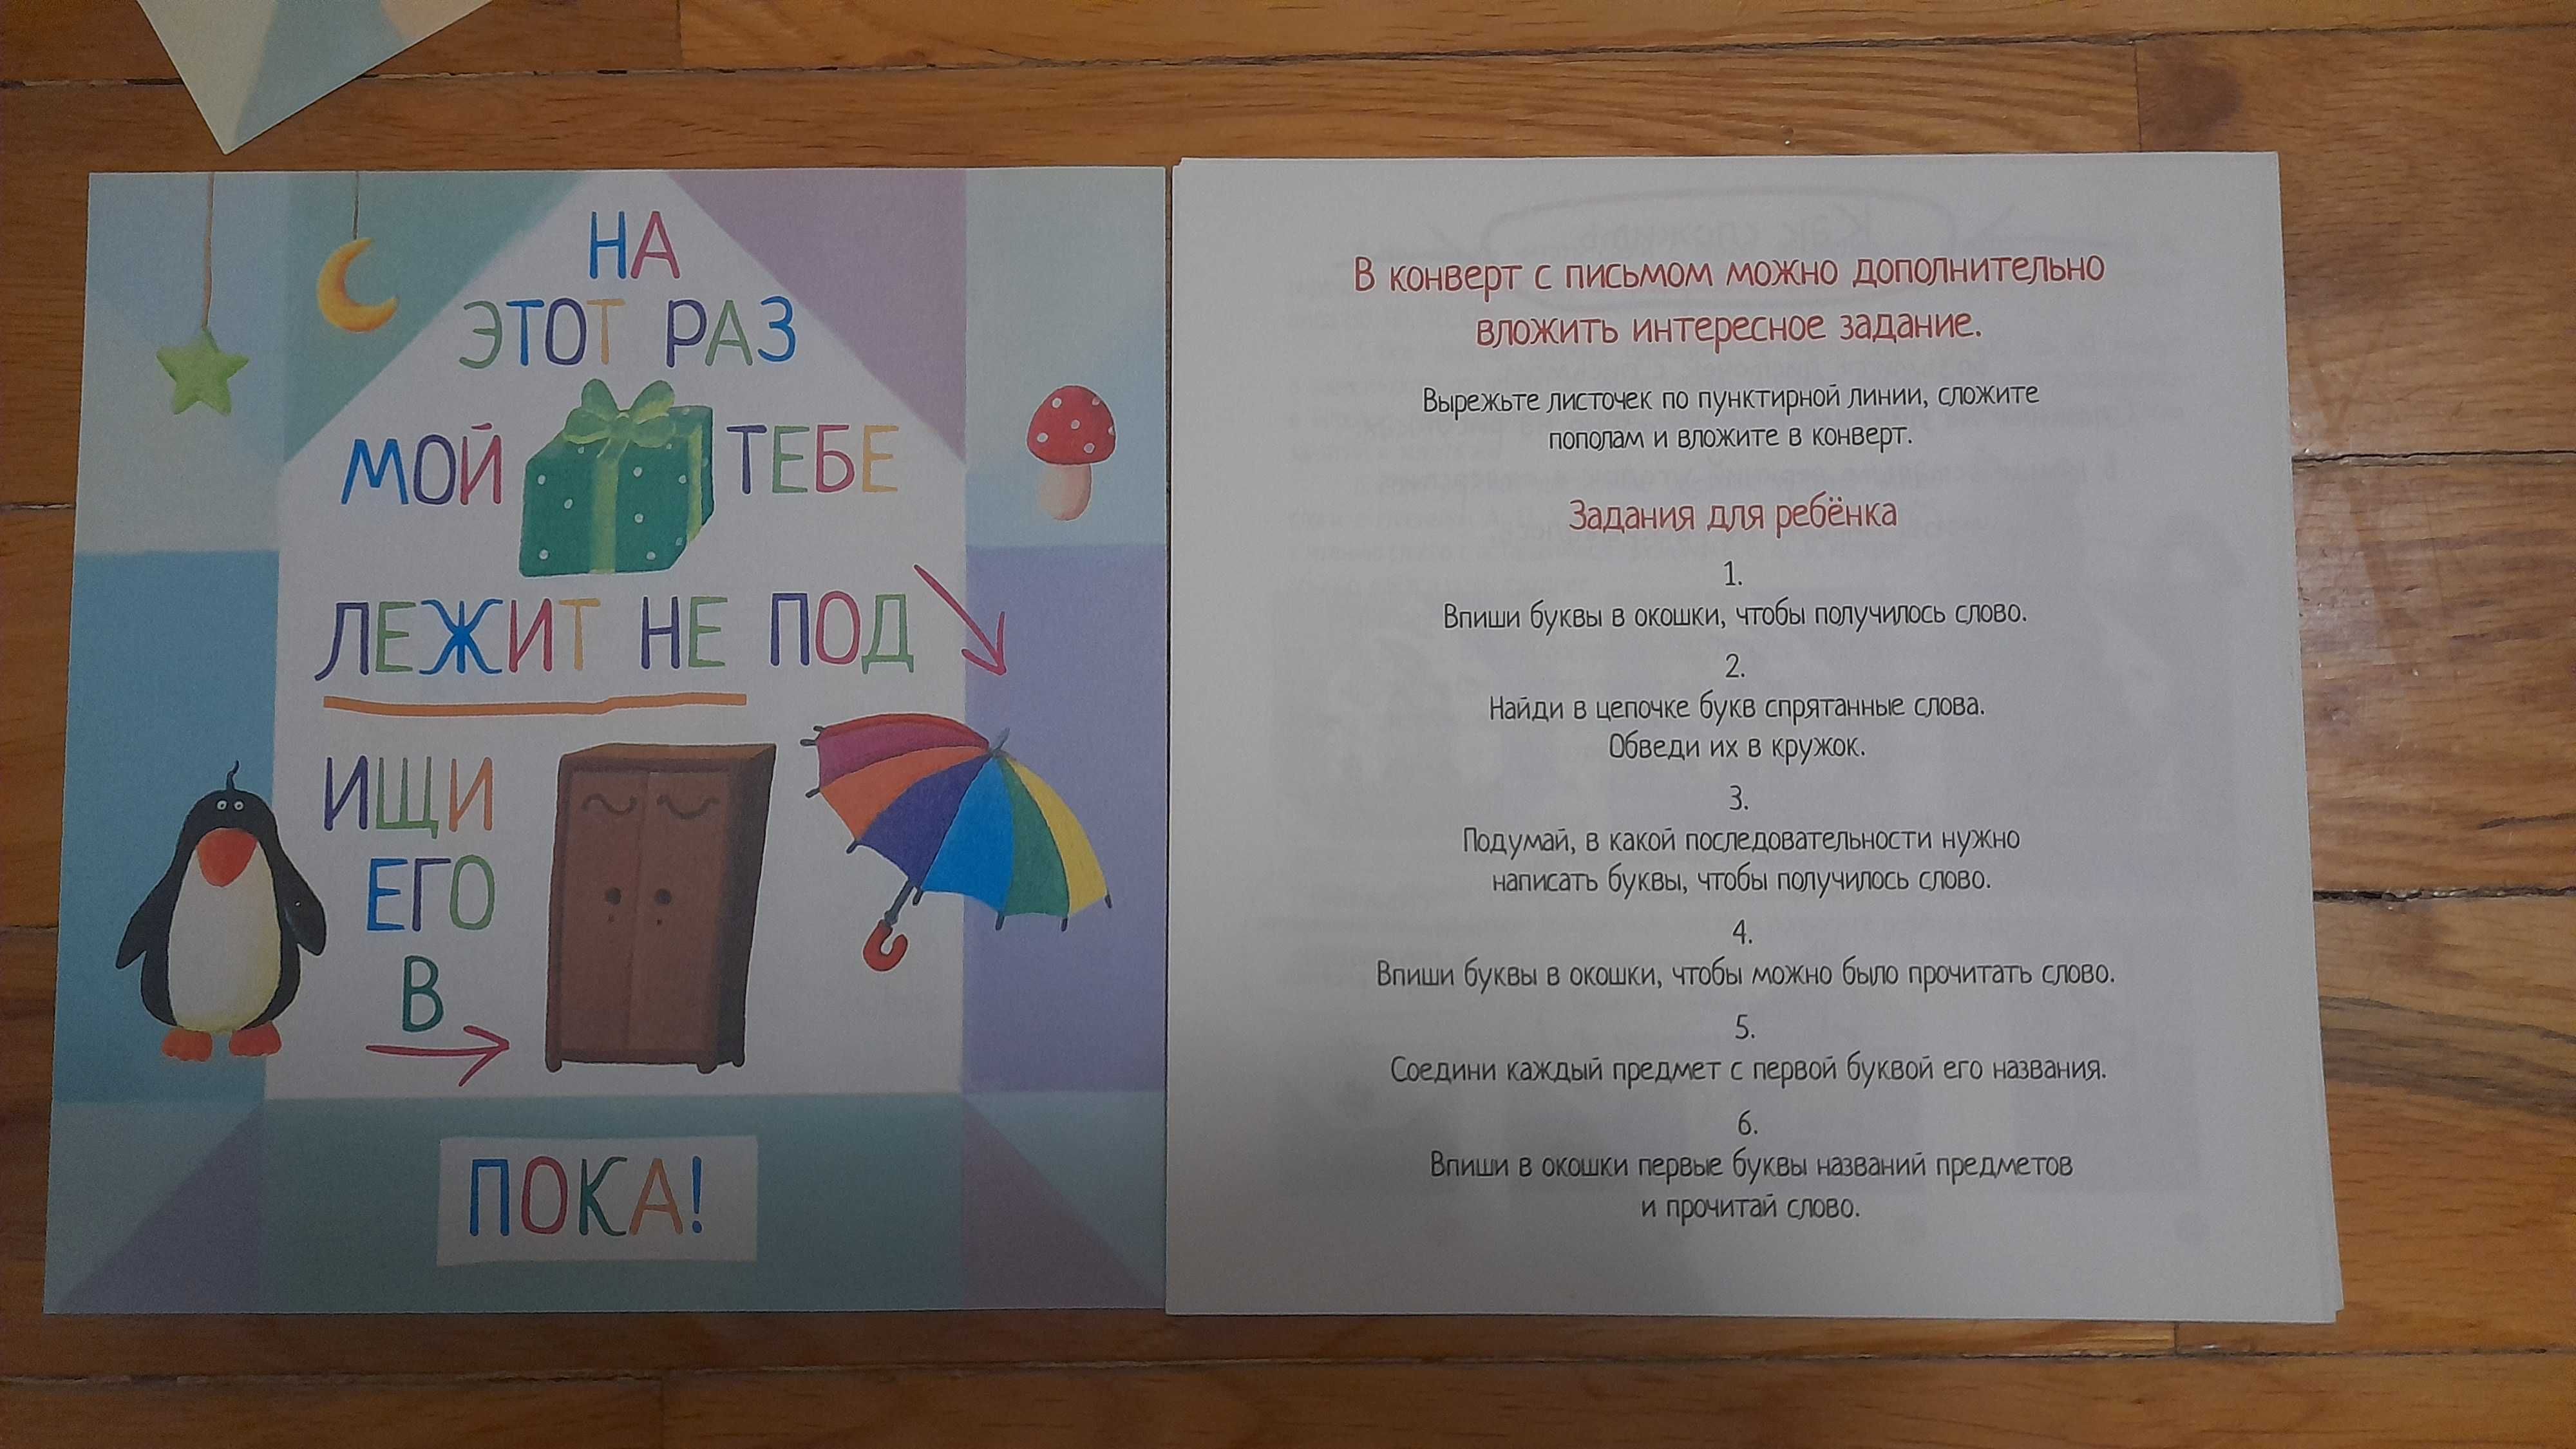 НА
ЭТОТ РАЗ
МОЙ ТЕБЕ
ЛЕЖИТ НЕ ПОД
ИЩИ
ЕГО
В
ПОКА!
В конверт с письмом можно дополнительно
вложить интересное задание.
Вырежьте листочек по пунктирной линии, сложите
пополам и вложите в конверт.
Задания для ребёнка
1.
Впиши буквы в окошки, чтобы получилось слово.
2.
Найди в цепочке букв спрятанные слова.
Обведи их в кружок.
3.
Подумай, в какой последовательности нужно
написать буквы, чтобы получилось слово.
4.
Впиши буквы в окошки, чтобы можно было прочитать слово.
5.
Соедини каждый предмет с первой буквой его названия.
6.
Впиши в окошки первые буквы названий предметов
и прочитай слово.